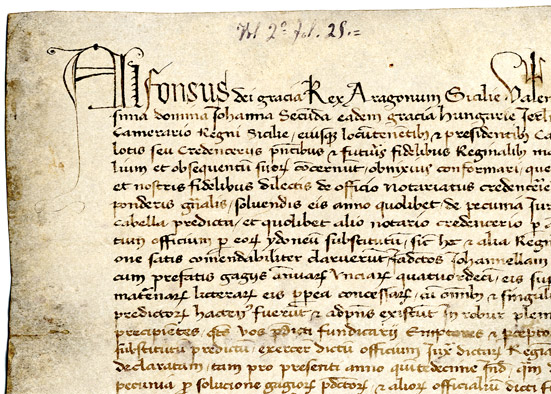 Vol 2º fol. 25.=
Alfonsus dei gracia Rex Aragonum Sicilie Valen
sima domina Johanna Secunda eadem gracia hungarie Jerl
Camerario Regni Sicilie, eiusq locutenetib et presidentib Ca
lotis seu Credencerijs pntibus et futuris fidelibus Reginalib ma
lium et obsequentium suor concernut, obnixius conformari, que
et nostris fidelibus dilectis de officio notariatus credencerie
ponderis gnalis, solvendis eis anno quolibet, de pecunia Jur
Cabella predicta, et quolibet alio notario credencerio p a
tum officium p eor ydoneu substitutu, sic hec et alia Regin
one satis comendabiliter claruerut, Johannellam
cum prefatis gagijs annuar Unciar quatuordeci, eis sup
maternar licterar eis ppea concessar, cu omib et singul
predictor hacten fuerut et adpns existut In robur plem
precipietes, vos pdicti fundicarij Emptores et
substitutu predictu, exercer dictu officium Jux dictar Regia
declaratum, tam pro presenti anno quitedecime Ind, qm d
pecunia p solucione gagior pdctor et alior officialiu dicti f